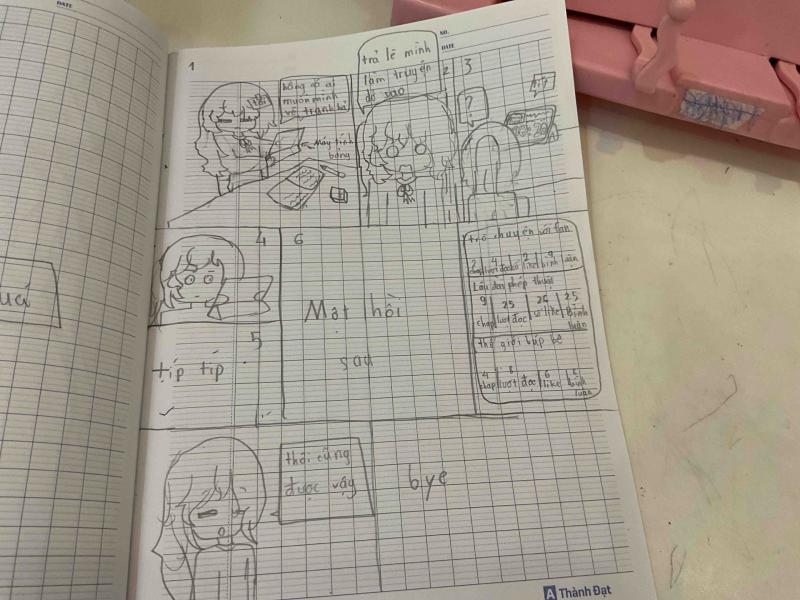 DATE
uá
NO.
DATE
1
hông có ai
muốn mình
vẽ tranh
Máy tính
bảng
trả lẽ mình
làm truyện
dở sao
2
3
?
4
5
típ típ
6
Một hồi
sau
trò chuyện với fan
2 4 2
chap lượt đọc like bình luận
Lâu đài phép thuật
9 25 26 25
chap lượt đọc số like Bình
luận
thế giới búp bê
4 8 6
chap lượt đọc like bình
luận
thôi cũng
được vậy
bye
Thành Đạt